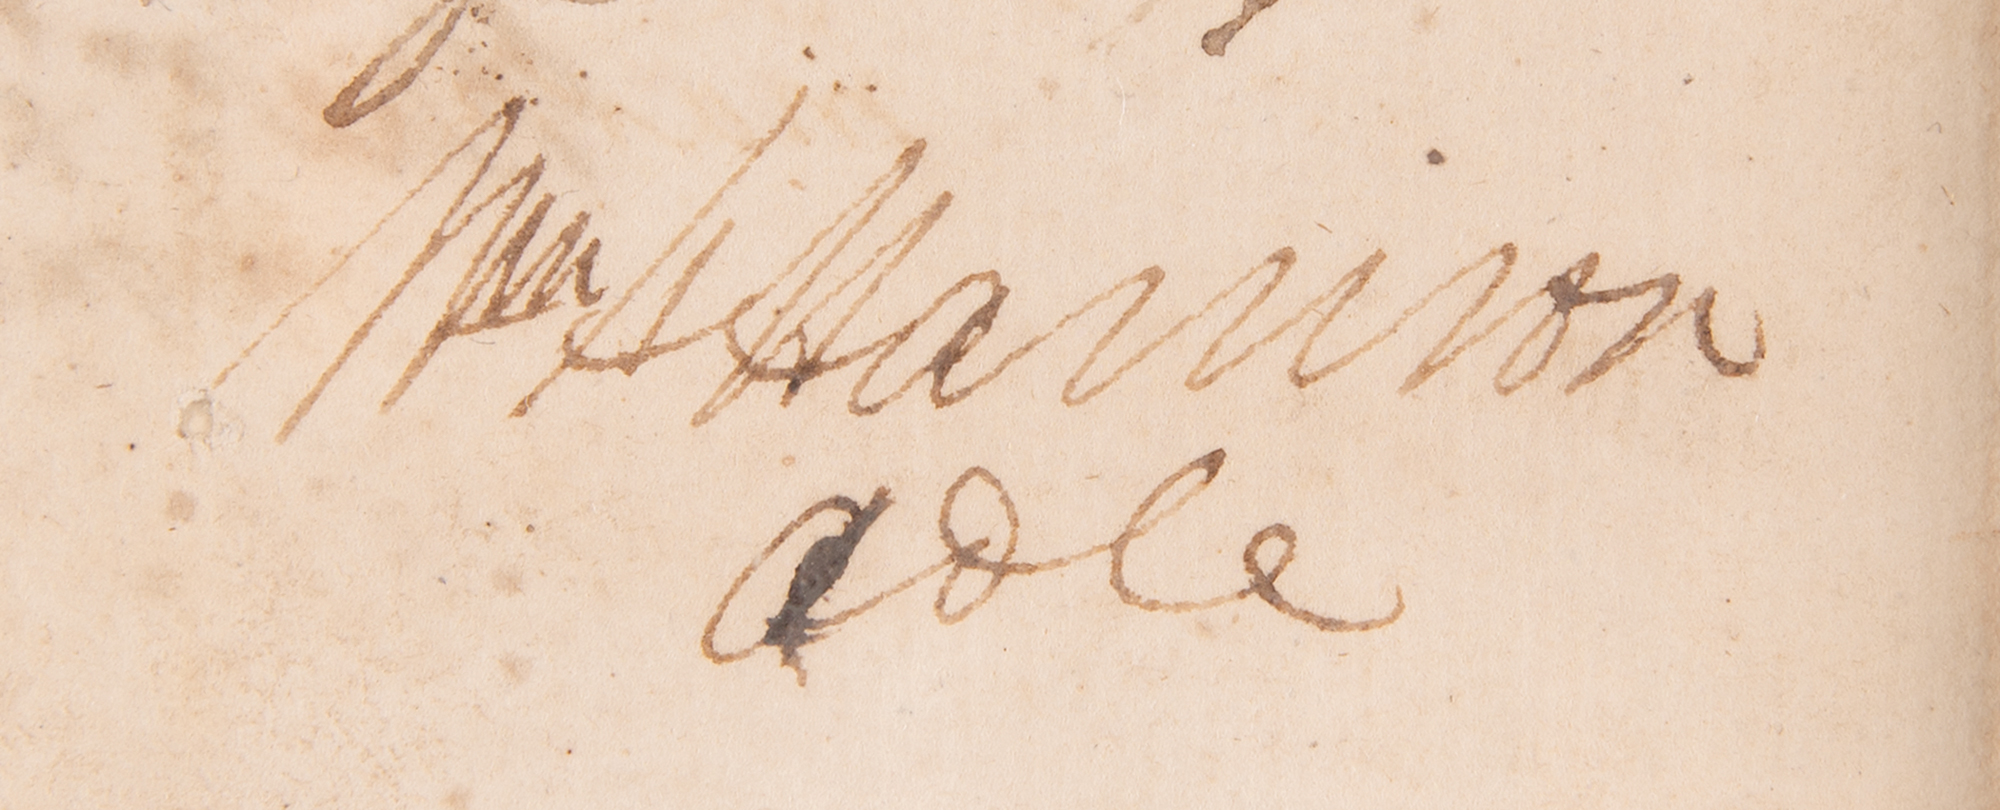 Wm H Harrison
adle